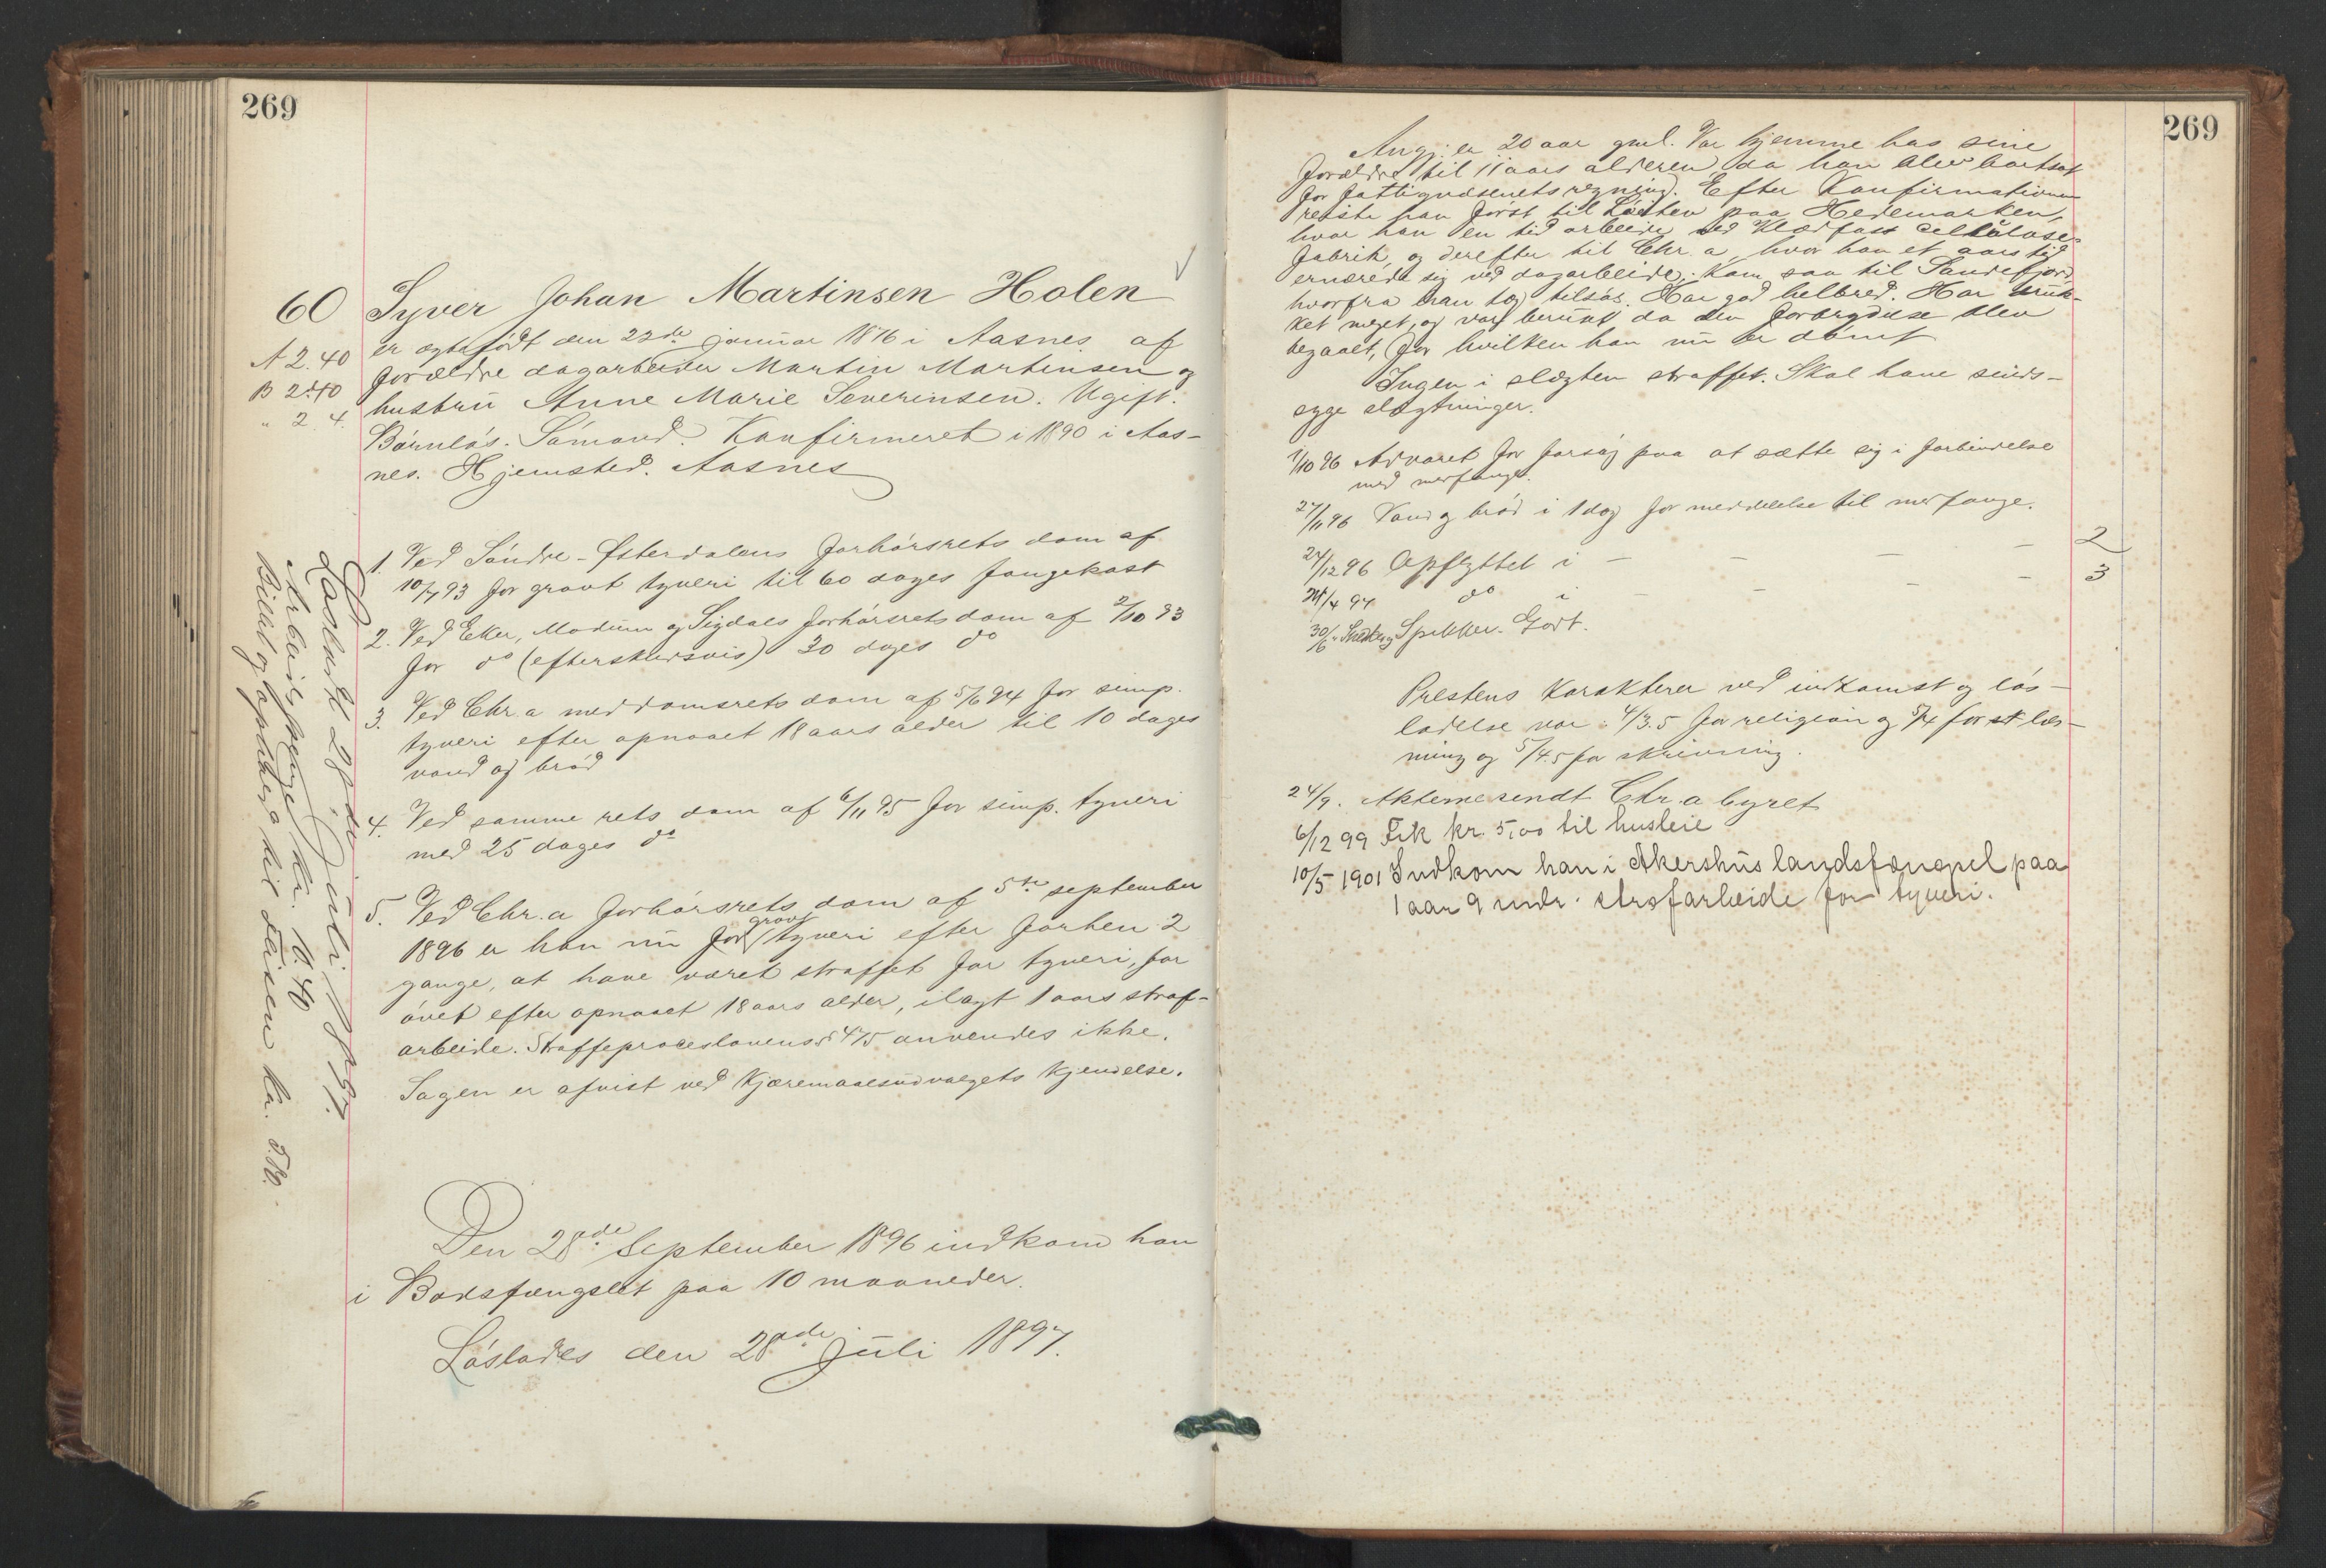 269
60 Syver Johan Martinsen Holen
A 2.40 er ægtefødt den 22de januar 1876 i Aasnes af
B 2.40 forældre dagarbeider Martin Martinsen og
" 2.4. hustru Anne Marie Severinsen. Ugift.
Børnløs. Sømand. Konfirmeret i 1890 i Aas-
nes. Hjemsted. Aasnes
1. Ved Søndre-Østerdalens forhørsrets dom af
10/7 93 for grovt tyveri til 60 dages fangekost
2. Ved Eker, Modum og Sigdals forhørsrets dom af 2/10 93
for do (efterskudsvis) 30 dages do
3. Ved Chr.a meddomsrets dom af 5/6 94 for simp.
tyveri efter opnaaet 18 aars alder til 10 dages
vand og brød
4. Ved samme rets dom af 6/11 95 for simp. tyveri
med 25 dages do
5. Ved Chr.a forhørsrets dom af 5te september
1896 er han nu for grovt tyveri efter forhen 2
gange, at have været straffet for tyveri, for
øvet efter opnaaet 18 aars alder, ilagt 1 aars straf-
arbeide. Straffeproceslovens § 475 anvendes ikke.
Sagen er afvist ved Kjæremaalsudvalgets Kjendelse.
Den 28de September 1896 indkom han
i Bodsfængslet paa 10 maaneder.
Løslades den 28de Juli 1897.
Løsladt 28de Juli 1897.
Arbeidspenge kr. 10.40
Billet og ophold til reisen kr.
269
Ang: er 20 aar gml. Var hjemme hos sine
forældre til 11 aars alderen, da han blev bortsat
for fattigvæsenets regning. Efter Konfirmationen
reiste han først til Løiten paa Hedemarken,
hvor han en tid arbeide ved Klædfoss cellulose-
fabrik, og derefter til Chr.a hvor han et aars tid
ernærede sig ved dagarbeide; kom saa til Sandefjord
hvorfra han tog tilsøs. Har god helbred. Har druk-
ket meget, og var beruset da den forbrydelse blev
begaaet, for hvilken han nu er dømt
Ingen i slægten straffet. Skal have sinds-
syge slægtninger.
1/10 96 Advaret for forsøg paa at sætte sig i forbindelse
med medfange.
27/11 96 Vand og brød i 1 dag for meddelelse til medfange.
24/12 96 Opflyttet i — — — — 2
24/4 97 do i — — — — 3
30/6 " Snedker og Spikker. Godt.
Prestens Karakterer ved indkomst og løs-
ladelse var: 4/3.5 for religion og 5/4 for læs-
ning og 5/4.5 for skrivning.
24/9. Akterne sendt Chr.a byret
6/12 99 Fik kr. 5,00 til husleie
10/5 1901 Indkom han i Akershus landsfængsel paa
1 aar 9 mdr. strafarbeide for tyveri.